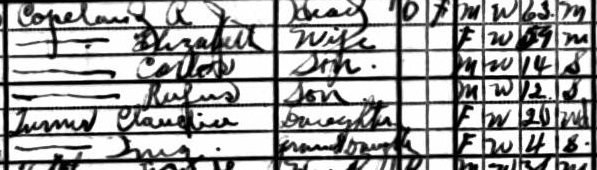 Copeland R J Head O F M W 63 M
Elizabeth Wife F W 59 M
Carlos Son. M W 14 S
Rufus Son M W 12 S
Turner Claudia Daughter F W 20 Wd
Inez. Granddaughter F W 4 S